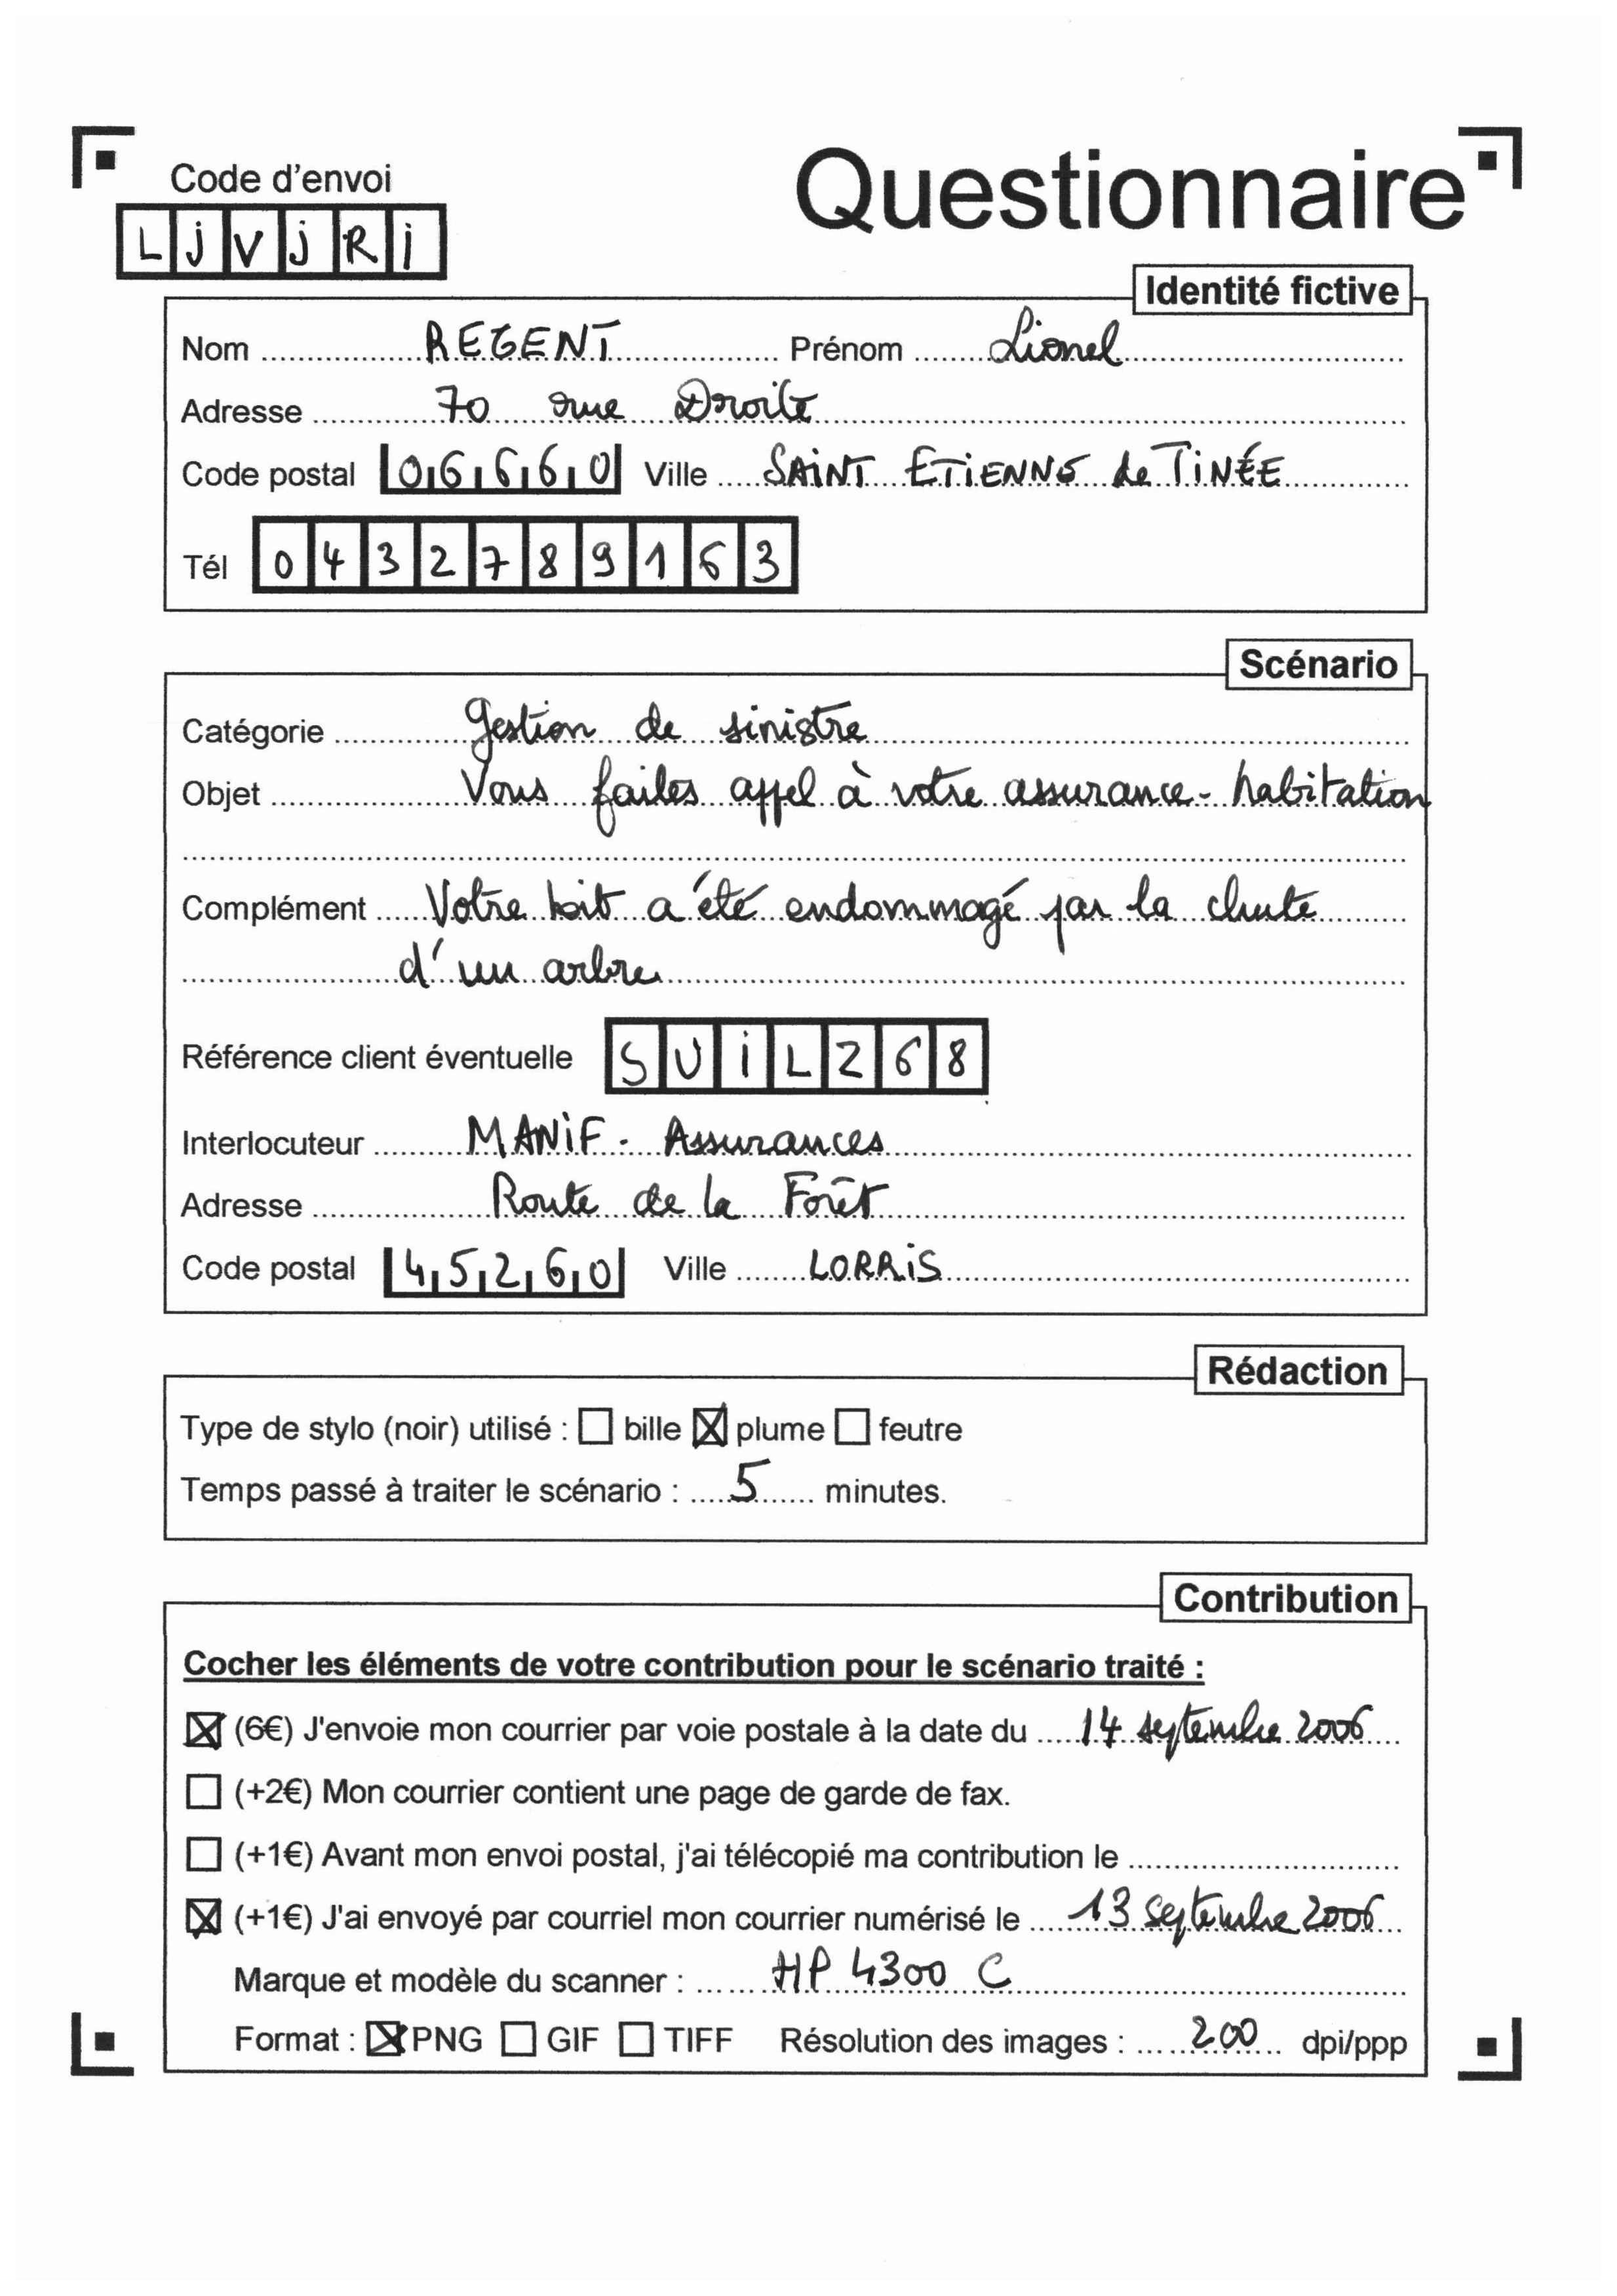 Code d'envoi
Questionnaire
LjVjRi
Identité fictive
Nom REGENT Prénom Lionel
Adresse 70 rue Droite
Code postal 06660 Ville SAiNT ETiENNE de TiNÉE
Tél 0432789163
Scénario
Catégorie gestion de sinistre
Objet Vous faites appel à votre assurance-habitation
Complément Votre toit a été endommagé par la chute
d'un arbre
Référence client éventuelle SUiL268
Interlocuteur MANiF. Assurances
Adresse Route de la Forêt
Code postal 45260 Ville LORRiS
Rédaction
Type de stylo (noir) utilisé : ☐ bille ☒ plume ☐ feutre
Temps passé à traiter le scénario : 5 minutes.
Contribution
Cocher les éléments de votre contribution pour le scénario traité :
☒ (6€) J'envoie mon courrier par voie postale à la date du 14 septembre 2006
☐ (+2€) Mon courrier contient une page de garde de fax.
☐ (+1€) Avant mon envoi postal, j'ai télécopié ma contribution le
☒ (+1€) J'ai envoyé par courriel mon courrier numérisé le 13 septembre 2006
Marque et modèle du scanner : HP 4300 C
Format : ☒ PNG ☐ GIF ☐ TIFF Résolution des images : 200 dpi/ppp